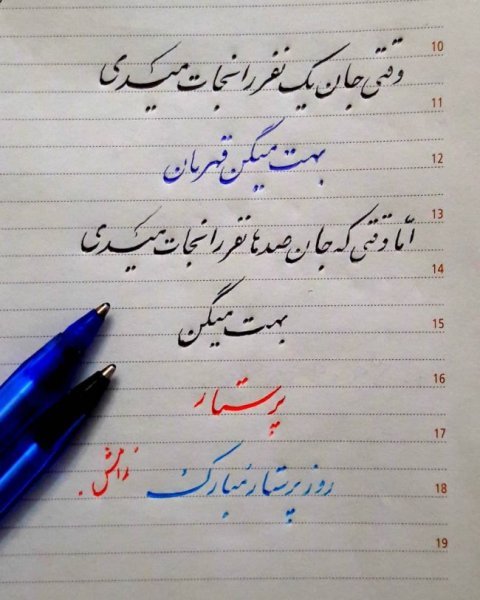 10
وقتی جان یک نفر را نجات میدی
11
بهت میگن قهرمان
12
13
اما وقتی که جان صدها نفر را نجات میدی
14
بهت میگن
15
16
پرستار
17
روز پرستار مبارک
18
19